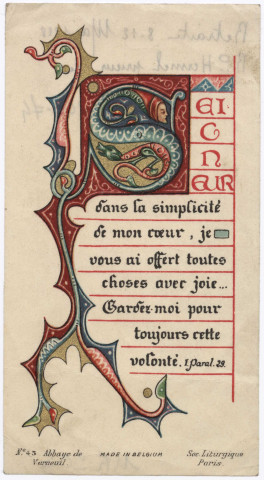 SEI-
GN
EUR
dans la simplicité
de mon cœur, je
vous ai offert toutes
choses avec joie...
Gardez-moi pour
toujours cette
volonté. 1 Paral. 29.
No 43 Abbaye de Verneuil
MADE IN BELGIUM
Soc. Liturgique Paris.